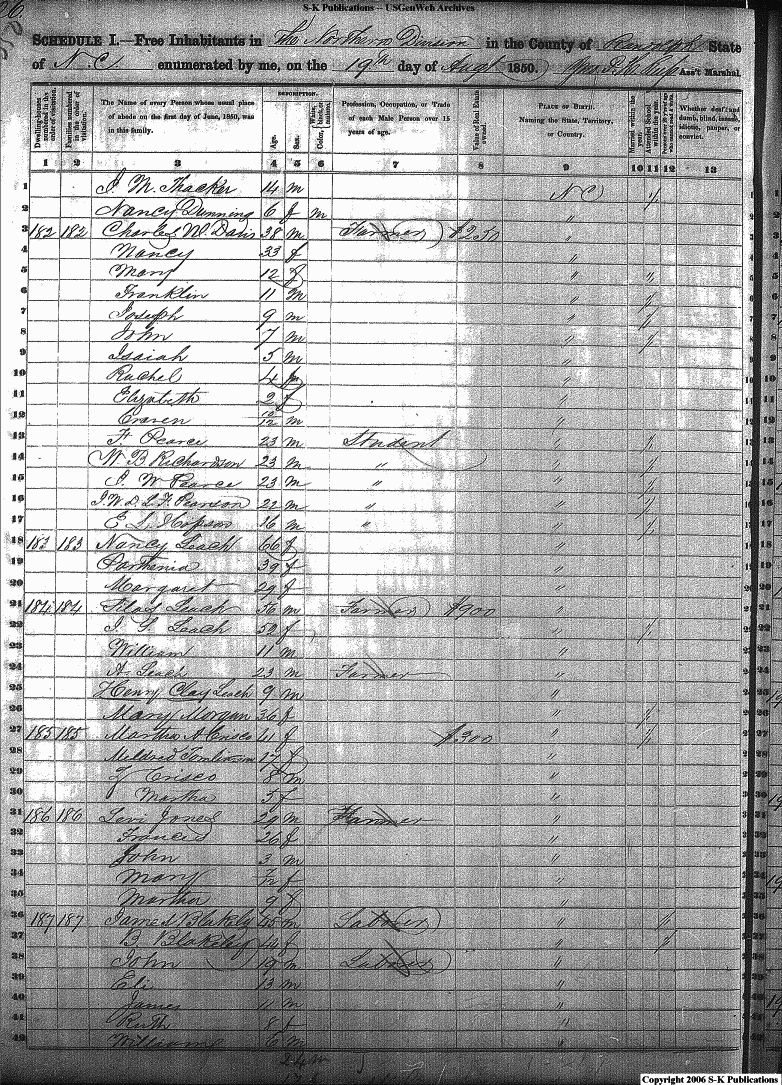 S-K Publications -- USGenWeb Archives
SCHEDULE I.—Free Inhabitants in The Northern Division in the County of Randolph State
of N.C. enumerated by me, on the 19th day of Augt 1850. Ass't Marshal.
DESCRIPTION.
Dwelling-houses numbered in the order of visitation. Families numbered in the order of visitation. The Name of every Person whose usual place of abode on the first day of June, 1850, was in this family. Age. Sex. Color, Profession, Occupation, or Trade of each Male Person over 15 years of age. Value of Real Estate owned. PLACE OF BIRTH. Naming the State, Territory, or Country. Married within the year. Attended School within the year. Whether deaf and dumb, blind, insane, idiotic, pauper, or convict.
1 2 3 4 5 6 7 8 9 10 11 12 13
1 J. M. Thacker 14 m N C / 1
2 Nancy Dunning 6 f m " 2
3 182 182 Charles W. Davis 38 m Farmer $250 " 3
4 Nancy 33 f " 4
5 Mary 12 f " / 5
6 Franklin 11 m " / 6
7 Joseph 9 m " / 7
8 John 7 m " / 8
9 Isaiah 5 m " 9
10 Rachel 4 " 10
11 Elizabeth 2 f " 11
12 Craven /12 m " 12
13 F Pearce 23 m Student " / 13
14 W. B Richardson 23 m " " / 14
15 J. W Pearce 23 m " " / 15
16 Pearson 22 m " " / 16
17 E. L. Hopson 16 m " " / 17
18 183 183 Nancy Leach 66 f " 18
19 Parthenia 39 f " 19
20 Margaret 29 f " 20
21 184 184 Leach 56 m Farmer $900 " 21
22 Leach 52 f " / 22
23 William 11 m " 23
24 A. Leach 23 m Farmer " 24
25 Henry Clay Leach 9 m " 25
26 Mary Morgan 36 f " / 26
27 185 185 Martha A Crisco 41 f $300 " / 27
28 Mildred Tomlinson 17 f " 28
29 Crisco 8 m " 29
30 Martha 5 f " 30
31 186 186 Levi Jones 30 m Farmer " 31
32 Frances 26 f " 32
33 John 3 m " 33
34 Mary /12 f " 34
35 Martha 9 f " 35
36 187 187 James Blakely 45 m Laborer " / 36
37 B. Blakeley 44 f " / 37
38 John 19 m Laborer " 38
39 Eli 13 m " 39
40 James 11 m " 40
41 Ruth 8 f " 41
42 William 6 m " 42
24 m
Copyright 2006 S-K Publications